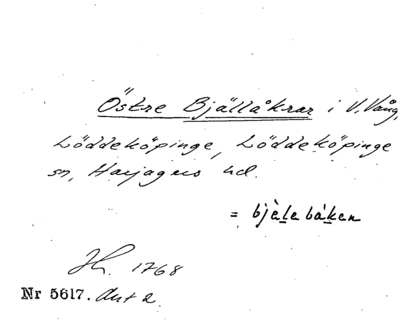 Östre Bjällåkrar i V. Vång,
Löddeköpinge, Löddeköpinge
sn, Harjagers hd.
= bjèle båken
1768
Nr 5617. Akt 2.